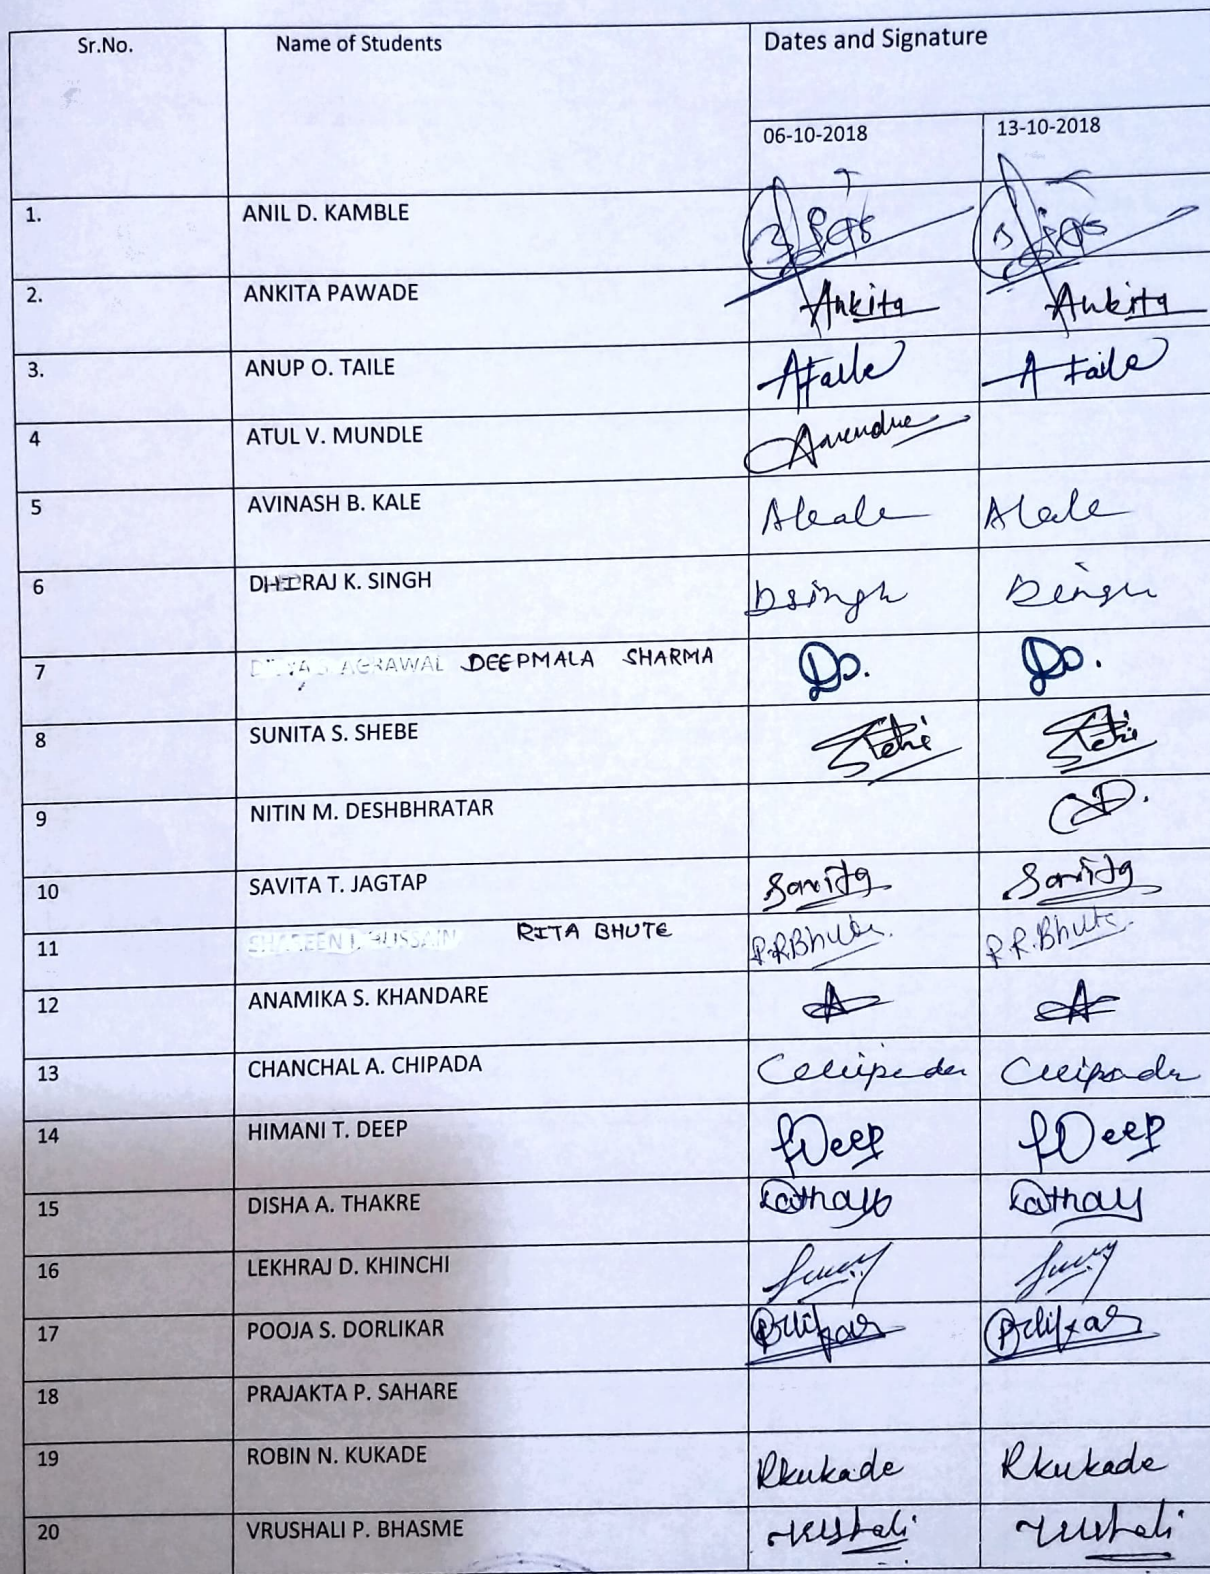 Sr.No. Name of Students Dates and Signature
06-10-2018 13-10-2018
1. ANIL D. KAMBLE
2. ANKITA PAWADE Ankita Ankita
3. ANUP O. TAILE ATaile A Taile
4 ATUL V. MUNDLE
5 AVINASH B. KALE AKale AKale
6 DHIRAJ K. SINGH Dsingh Dsingh
7 AGRAWAL DEEPMALA SHARMA DS. DS.
8 SUNITA S. SHEBE
9 NITIN M. DESHBHRATAR
10 SAVITA T. JAGTAP Savita Savita
11 SHAREEN I. HUSSAIN RITA BHUTE R.R.Bhute. R.R.Bhute.
12 ANAMIKA S. KHANDARE A A
13 CHANCHAL A. CHIPADA CChipada CChipada
14 HIMANI T. DEEP HDeep HDeep
15 DISHA A. THAKRE
16 LEKHRAJ D. KHINCHI
17 POOJA S. DORLIKAR
18 PRAJAKTA P. SAHARE
19 ROBIN N. KUKADE Rkukade Rkukade
20 VRUSHALI P. BHASME Vrushali Vrushali